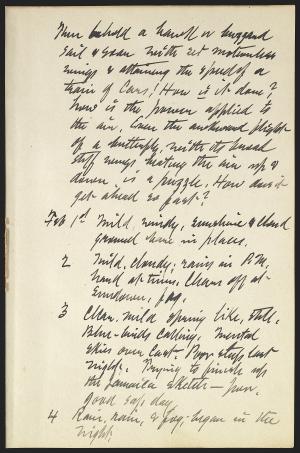 Then behold a hawk or buzzard
sail & soar with set motionless
wings & attaining the speed of a
train of cars! How is it done?
How is the power applied to
the air. Even the awkward flight
of a butterfly, with its broad
stiff wings beating the air up &
down is a puzzle. How does it
get ahead so fast?
Feb 1st Mild, windy, sunshine & cloud
ground bare in places.
2 Mild, cloudy; rains in P.M.
hard at times. Clears off at
Sundown, fog.
3 Clear, mild spring like, still,
Blue-birds calling. Mental
skies over cast. Poor sleep last
night. Trying to finish up
the Jamaica Sketch — poor,
good sap day.
4 Rain, rain, & fog; began in the
night